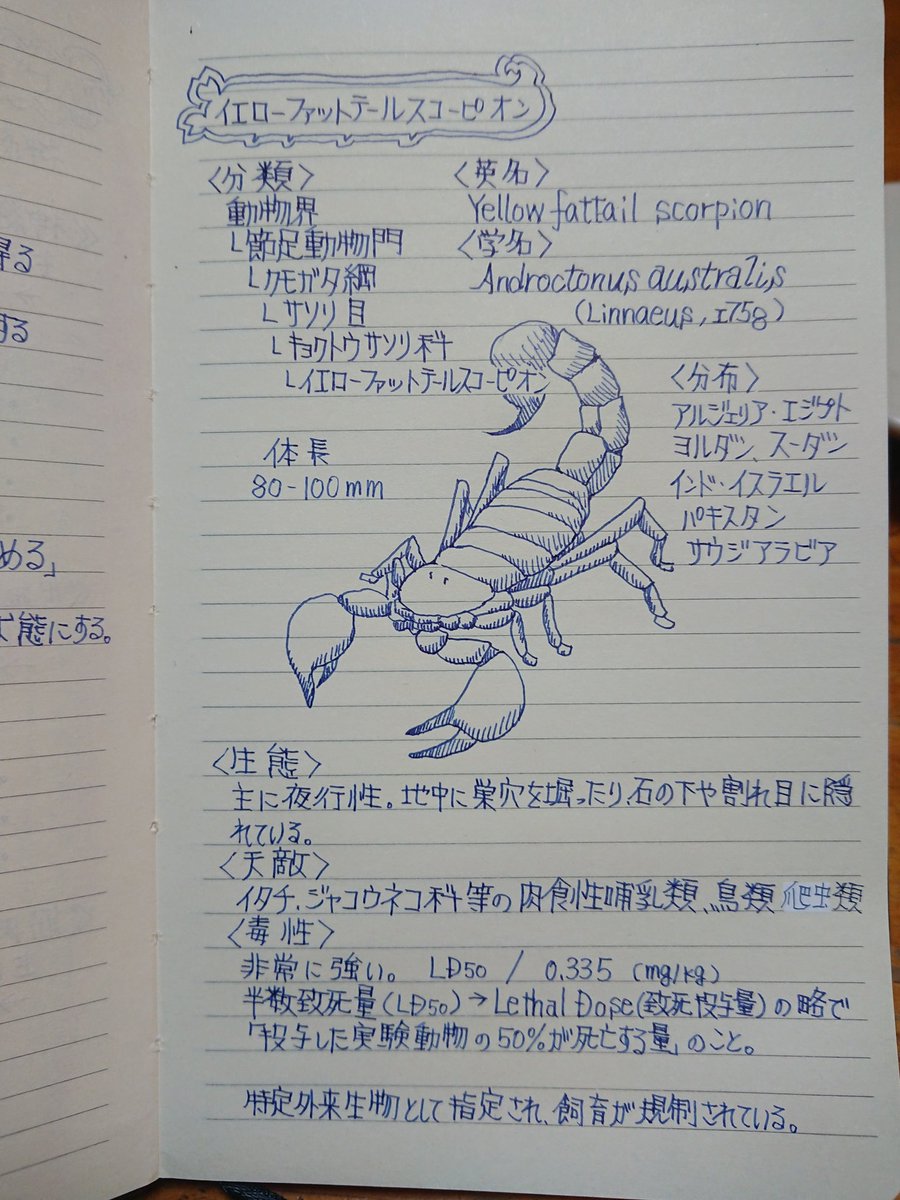 得る
する
める」
態にする。
イエローファットテールスコーピオン
〈分類〉
動物界
└節足動物門
└クモガタ綱
└サソリ目
└キョクトウサソリ科
└イエローファットテールスコーピオン
〈英名〉
Yellow fattail scorpion
〈学名〉
Androctonus australis
(Linnaeus, 1758)
体長
80-100mm
〈分布〉
アルジェリア・エジプト
ヨルダン、スーダン
インド・イスラエル
パキスタン
サウジアラビア
〈生態〉
主に夜行性。地中に巣穴を堀ったり、石の下や割れ目に隠
れている。
〈天敵〉
イタチ、ジャコウネコ科等の肉食性哺乳類、鳥類、爬虫類
〈毒性〉
非常に強い。 LD50 / 0.335 (mg/kg)
半数致死量(LD50)→Lethal Dose(致死投与量)の略で
「投与した実験動物の50%が死亡する量」のこと。
特定外来生物として指定され、飼育が規制されている。